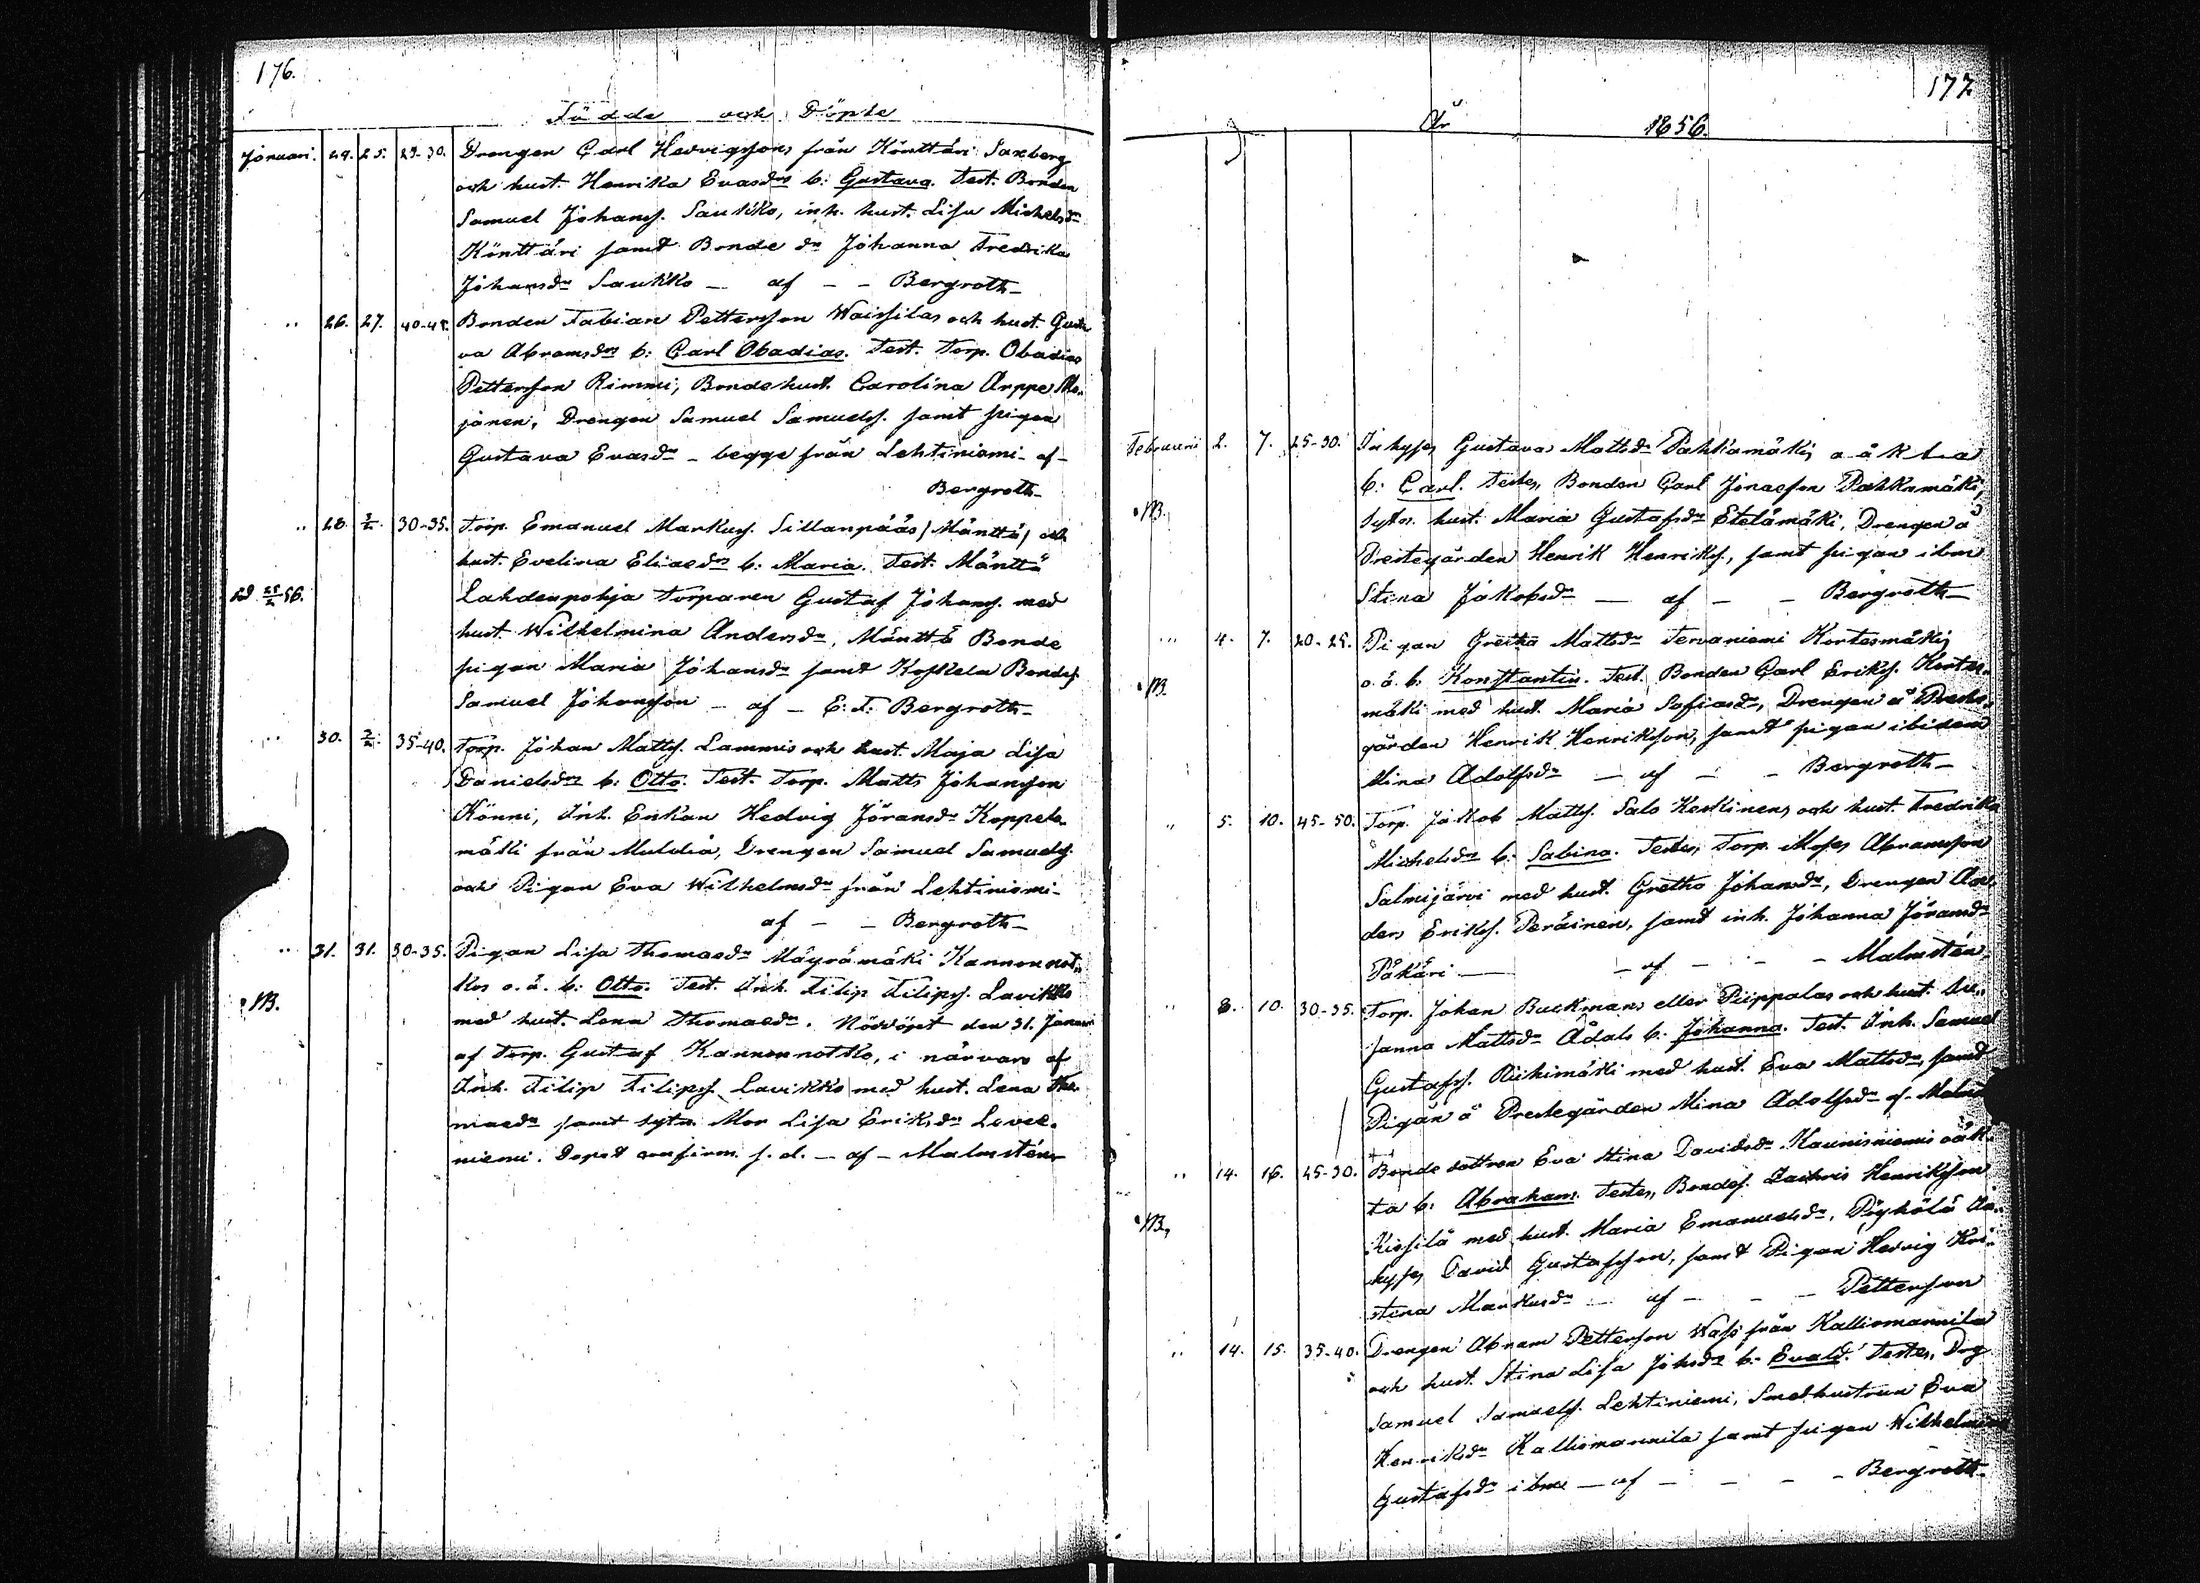 176.
Födde och Döpte
Januari. 24. 25. 25-30. Drengen Carl Hedvigsons från Könttäri Saxberg
och hust. Henrika Evasdr b: Gustava. Test. Bonden
Samuel Johans. Saukko, inh. hust. Lisa Michelsdr
Könttäri samt Bonde dr Johanna Fredrika
Johansdr Saukko — af — — Bergroth—
" 26. 27. 40-45. Bonden Fabian Petterson Waissilas och hust. Gusta
va Abramsdrs b: Carl Obadias. Test. Torp. Obadias
Petterson Rimmi, Bondehust. Carolina Arppe
jänen, Drengen Samuel Samuels. samt pigan
Gustava Evasdr — begge från Lehtiniemi — af —
Bergroth—
" 28. 2/2. 30-35. Torp. Emanuel Markus. Sillanpääs (Mänttä) och
hust. Evelina Eliasdrs b: Maria. Test. Mänttä
Lahdenpohja Torparen Gustaf Johans. med
hust. Wilhelmina Andersdr, Mänttä Bonde
pigan Maria Johansdr samt Koskela Bondes.
Samuel Johanson — af — E. F. Bergroth—
" 30. 2/2. 35-40. Torp. Johan Matts. Lammis och hust. Maja Lisa
Danielsdrs b: Otto. Test. Torp. Matts Johanson
Könni, Inh. Enkan Hedvig Göransdr Koppelo-
mäki från Multia, Drengen Samuel Samuels.
och Pigan Eva Wilhelmsdr från Lehtiniemi—
af — — Bergroth—
" 31. 31. 30-35. Pigan Lisa Thomasdr Mäyrämäki Kannonnot-
kos o.ä. b: Otto. Test. Inh. Filip Filips. Lavikko
NB.
med hust. Lena Thomasdr. Nöddöpt den 31. Januari
af Torp. Gustaf Kannonnotko, i närvaro af
Inh. Filip Filips. Lavikko med hust. Lena Tho-
masdr samt sytn. Mor Lisa Eriksdr
niemi. Dopet confirm. s. d. — af — Malmstén
177
År 1856.
Februarii 2. 7. 25-30. Inhyses Gustava Mattsdr Pahkamäkis o ä k ta
b: Carl. Testes, Bonden Carl Jonasson Pahkamäki,
NB.
Sytn. hust. Maria Gustafsdr Etelämäki, Drengen å
Prestegården Henrik Henriks., samt pigan ibm
Stina Jakobsdr — af — — Bergroth—
" 4. 7. 20-25. Pigan Greta Mattsdr Tervaniemi Kortesmäkis
o.ä. b: Konstantin. Test. Bonden Carl Eriks. Kortes-
NB.
mäki med hust. Maria Sofiasdr, Drengen å Preste-
gården Henrik Henrikson, samt pigan ibidem
Mina Adolfsdr — af — — Bergroth—
" 5. 10. 45-50. Torp. Jakob Matts. Salo Keskinens och hust. Fredrika
Michelsdrs b: Sabina. Testes, Torp. Moses Abramson
Salmijärvi med hust. Gretha Johansdr, Drengen An-
ders Eriks. Peräinen, samt inh. Johanna Göransdr
Påkäri — — af — — — Malmstén.
" 8. 10. 30-35. Torp. Johan Buckmans eller Piippolas och hust. Su-
sanna Mattsdr Ådals b: Johanna. Test. Inh. Samuel
Gustafs. Riihimäki med hust. Eva Mattsdr, samt
Pigan å Prestegården Mina Adolfsdr af
" 14. 16. 25-30. Bonde dottren Eva Stina Davidsdr Kaunisniemis oäk-
ta b: Abraham. Testes, Bondes. Zachris Henrikson
NB.
Kissilä med hust. Maria Emanuelsdr, Pöyhölä In-
hyses David Gustafson, samt Pigan Hedvig Kri-
stina Markusdr — af — — — Petterson
" 14. 15. 35-40. Drengen Abram Petterson Wass från Kalliomannila
och hust. Stina Lisa Johsdrs b: Evald. Testes, Drg
Samuel Samuels. Lehtiniemi, Smedhustrun Eva
Henriksdr Kalliomannila samt pigan Wilhelmina
Gustafsdr ibm — af — — — Bergroth—